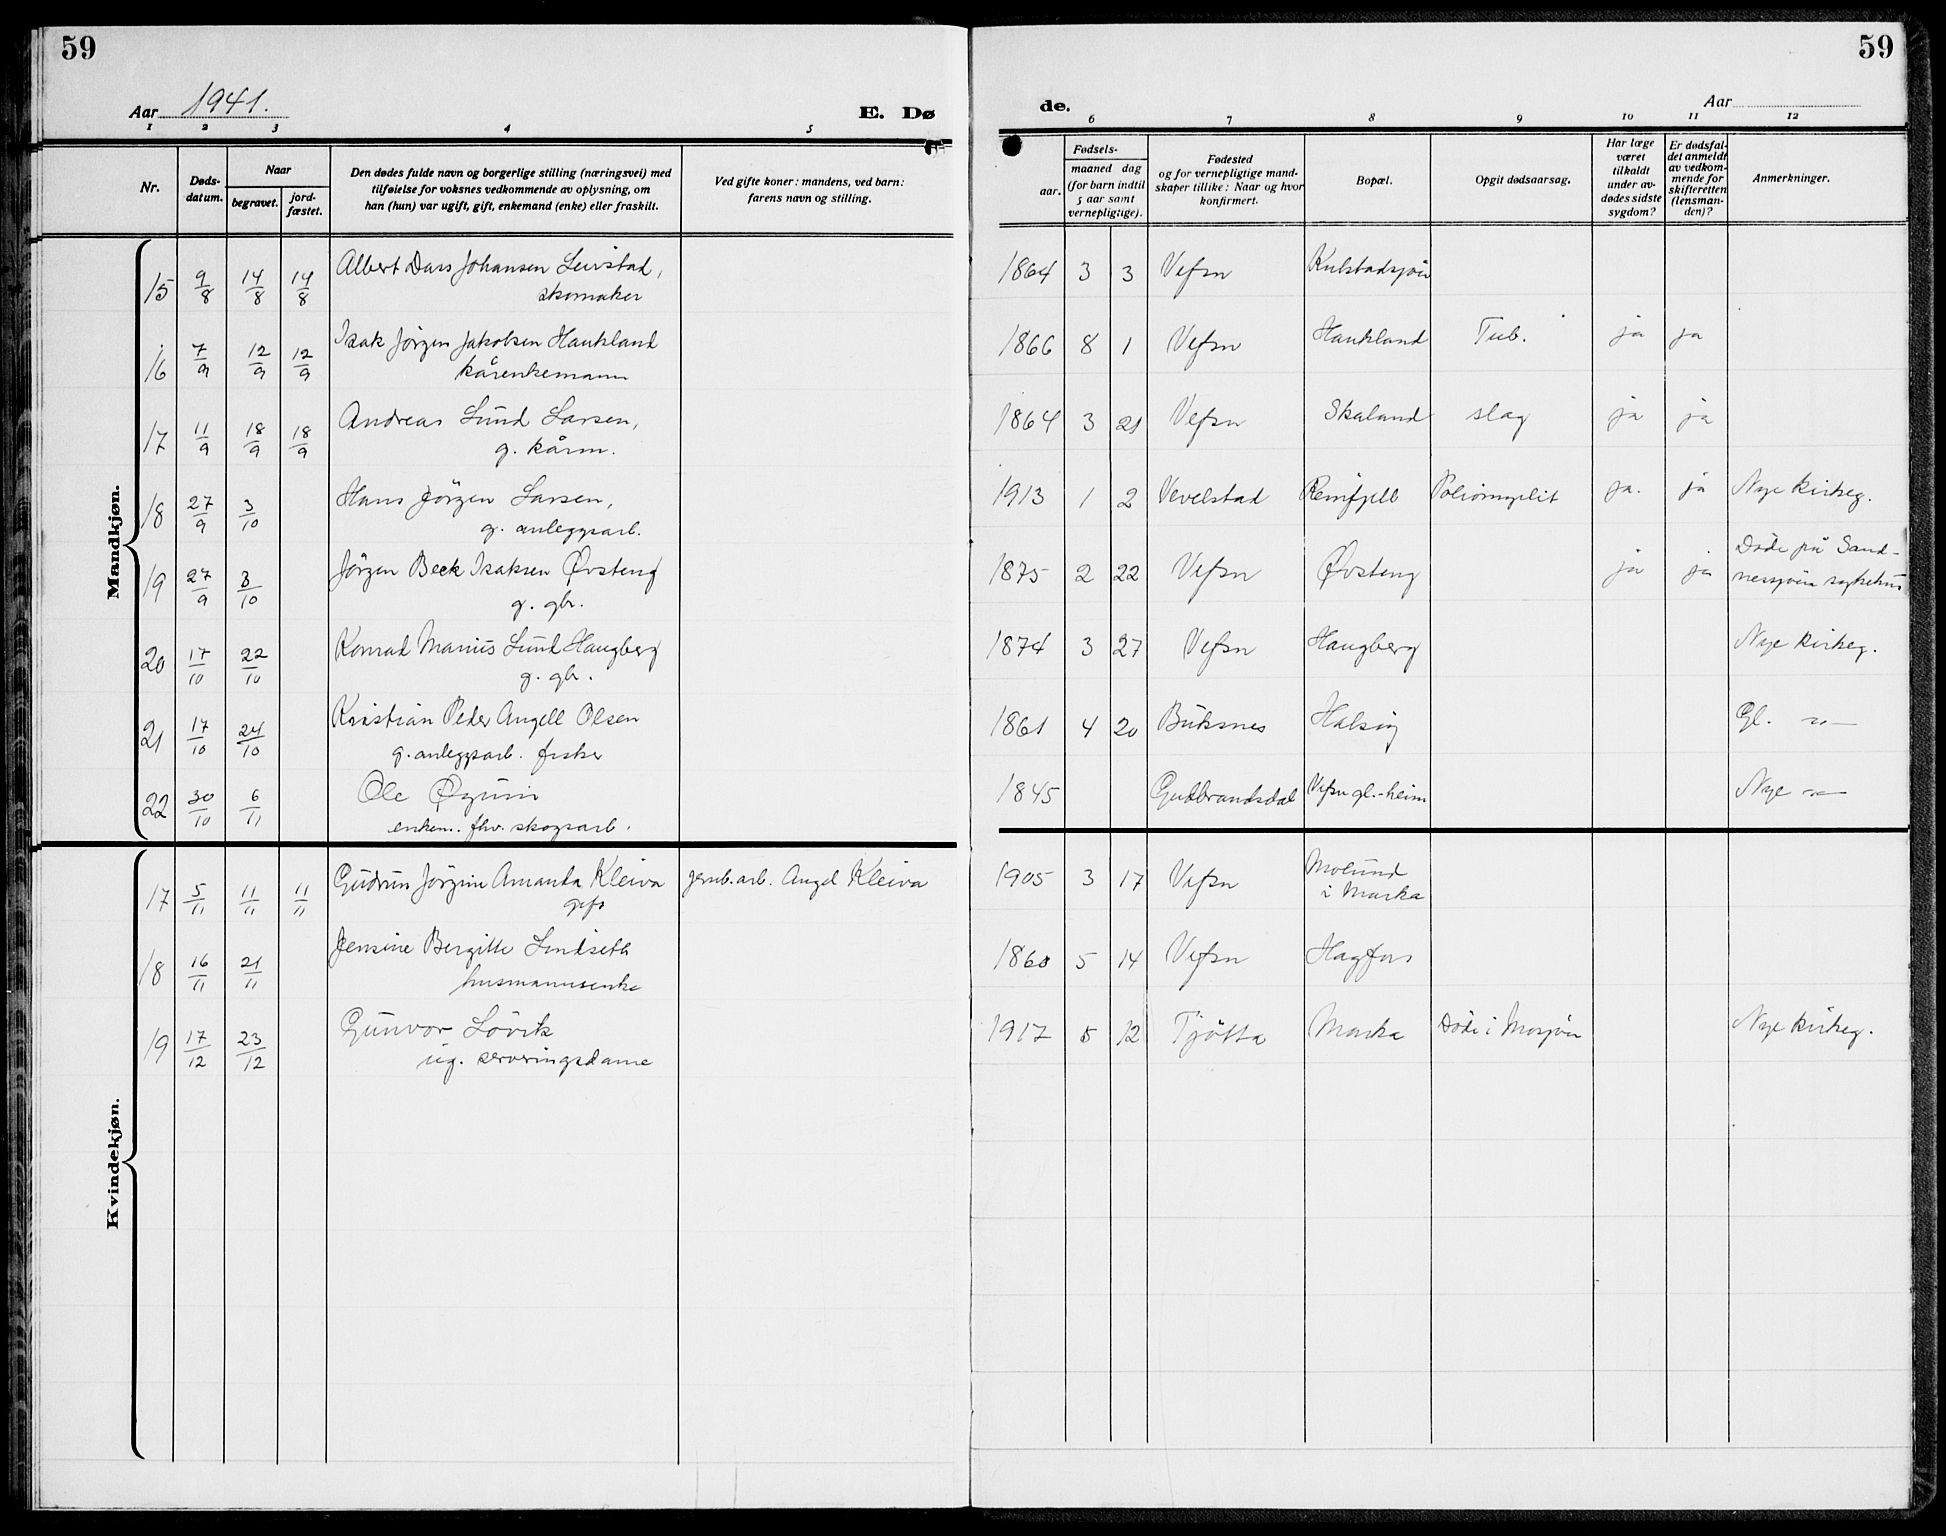 59
Aar 1941.
E. Dø
1 2 3 4 5
Nr.
Døds-
datum.
Naar
begravet.
jord-
fæstet.
Den dødes fulde navn og borgerlige stilling (næringsvei) med
tilføielse for voksnes vedkommende av oplysning, om
han (hun) var ugift, gift, enkemand (enke) eller fraskilt.
Ved gifte koner: mandens, ved barn:
farens navn og stilling.
Mandkjøn.
15 9/8 14/8 14/8 Albert Johansen
skomaker
16 7/9 12/9 12/9 Isak Jörgen Jakobsen Haukland
kårenkemann
17 11/9 18/9 18/9 Andreas Lund Larsen,
g. kårm.
18 27/9 3/10 Hans Jörgen Larsen,
g. anleggsarb.
19 27/9 3/10 Jörgen Beck Isaksen Øvsteng
g. gbr.
20 17/10 22/10 Konrad Marius Lund Haugberg
g. gbr.
21 17/10 24/10 Kristian Peder Angell Olsen
g. anleggsarb. fisker
22 30/10 6/11 Ole
enkem. fhv. skogsarb.
Kvindekjøn.
17 5/11 11/11 11/11 Gudrun Jörgine Amanda Kleiva jernb.arb. Angel Kleiva
gift
18 16/11 21/11 Jensine Bergitte Lindseth
husmannsenke
19 17/12 23/12 Gunvor Lövik
ug. serveringsdame
59
de.
Aar
6 7 8 9 10 11 12
aar.
Fødsels-
maaned dag
(for barn indtil
5 aar samt
vernepligtige).
Fødested
og for vernepligtige mand-
skaper tillike: Naar og hvor
konfirmert.
Bopæl.
Opgit dødsaarsag.
Har læge
været
tilkaldt
under av-
dødes sidste
sygdom?
Er dødsfal-
det anmeldt
av vedkom-
mende for
skifteretten
(lensman-
den)?
Anmerkninger.
1864 3 3 Vefsn Kulstadsjöen
1866 8 1 Vefsn Haukland Tub. ja ja
1864 3 21 Vefsn Skaland slag ja ja
1913 1 2 Vevelstad Reinfjell Poliomyelit ja. ja Nye kirkeg.
1875 2 22 Vefsn Øvsteng ja ja Döde på Sand-
nessjöen sykehus
1874 3 27 Vefsn Haugberg Nye kirkeg.
1861 4 20 Buksnes Halsöy Gl. —"—
1845 Gudbrandsdal Vefsn gl.-heim Nye —"—
1905 3 17 Vefsn Molund
i Marka
1860 5 14 Vefsn Hagfors
1917 5 12 Tjötta Marka Döde i Mosjöen Nye kirkeg.